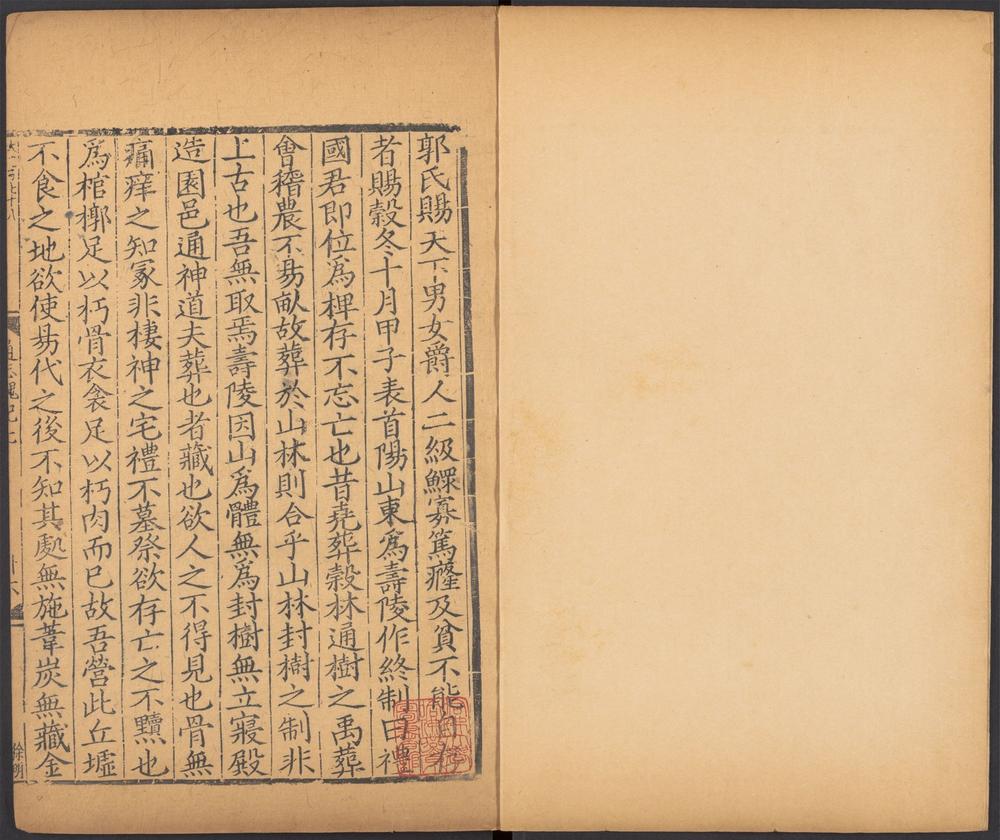 郭氏賜天下男女爵人二級鰥寡篤癃及貧不能自存
者賜穀冬十月甲子表首陽山東爲壽陵作終制曰禮
國君即位爲椑存不忘亡也昔堯葬穀林通樹之禹葬
會稽農不易畝故葬於山林則合乎山林封樹之制非
上古也吾無取焉壽陵因山爲體無爲封樹無立寢殿
造園邑通神道夫葬也者藏也欲人之不得見也骨無
痛痒之知冢非棲神之宅禮不墓祭欲存亡之不黷也
爲棺槨足以朽骨衣衾足以朽肉而已故吾營此丘墟
不食之地欲使易代之後不知其處無施葦炭無藏金